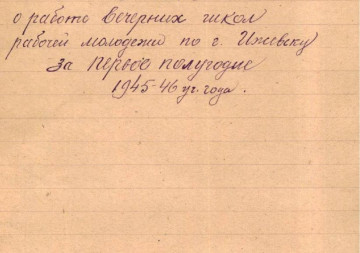 о работе Вечерних школ
рабочей молодежи по г. Ижевску
за первое полугодие
1945-46 уч. года.